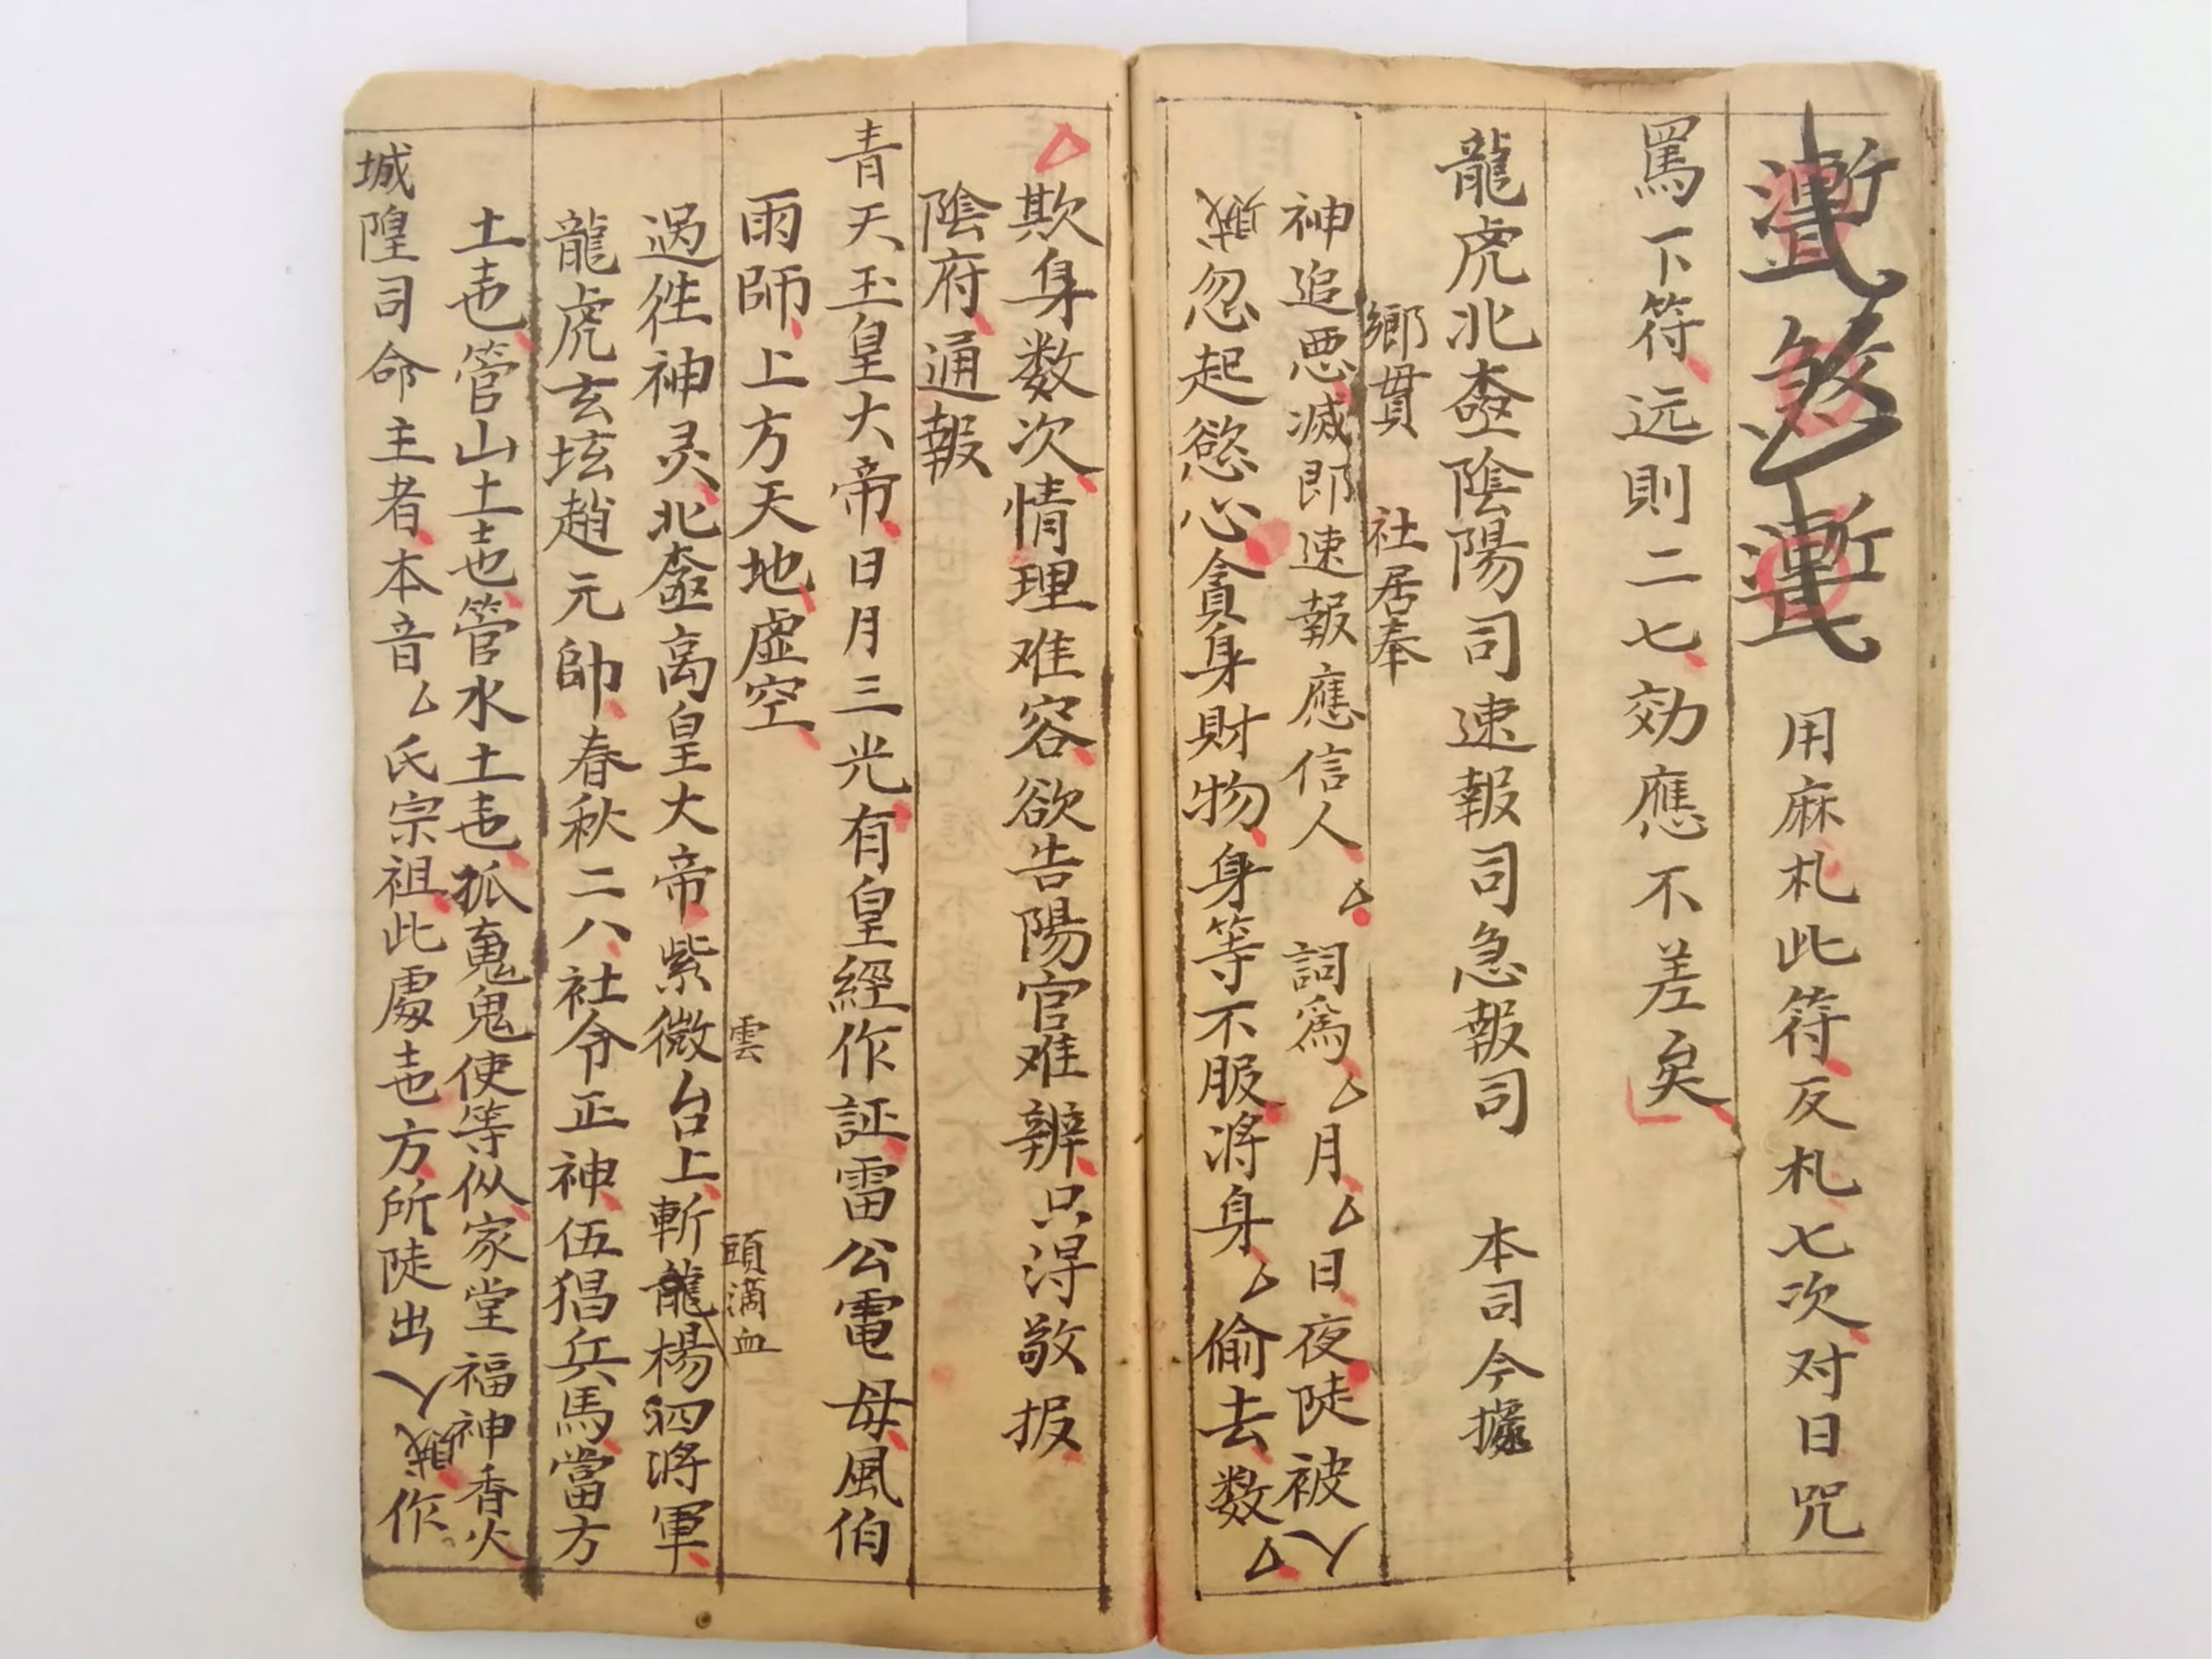 用麻札此符反札七次对日咒
罵下符远則二七効應不差矣
龍虎北壺陰陽司速報司急報司 本司今據
鄉貫 社居奉
神追惡滅即速報應信人厶 詞為厶月厶日夜陡被人
賊忽起慾心貪身財物身等不服將身厶偷去数厶
欺身数次情理难容欲告陽官难辨只得敬报
陰府通報
青天玉皇大帝日月三光有皇經作証雷公電母風伯
雨師上方天地虛空
雲 頭滴血
过往神灵北壺高皇大帝紫微台上斬龍楊泗將軍
龍虎玄坛趙元帥春秋二八社令正神伍猖兵馬當方
土岜管山土岜管水土岜孤魂鬼使等似家堂福神香火
城隍司命主者本音厶氏宗祖此處岜方所陡出人賊作